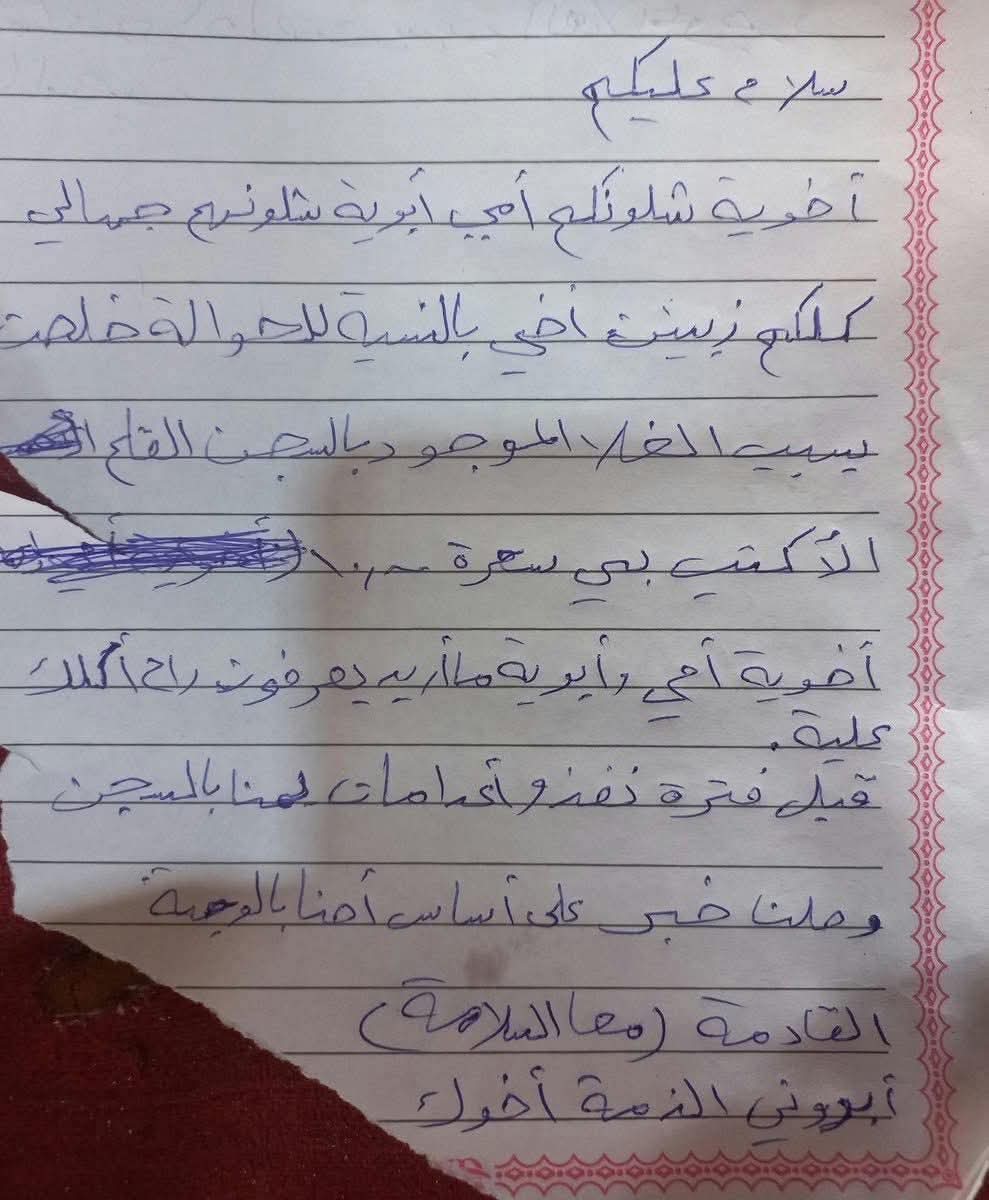 سلام عليكم
أخوية شلونكم أمي أبوية شلونهم جهالي
كلكم زينين أخي بالنسبة للحوالة خلصت
بسبب الغلا الموجود بالسجن القلم
الأكتب بي سعرة
أخوية أمي وأبوية ما أريد يعرفون راح أكلك
علية.
قبل فترة نفذو أعدامات يمنا بالسجن
وصلنا خبر على أساس أحنا بالوجبة
القادمة (معا السلامة)
أبروني الذمة أخوك